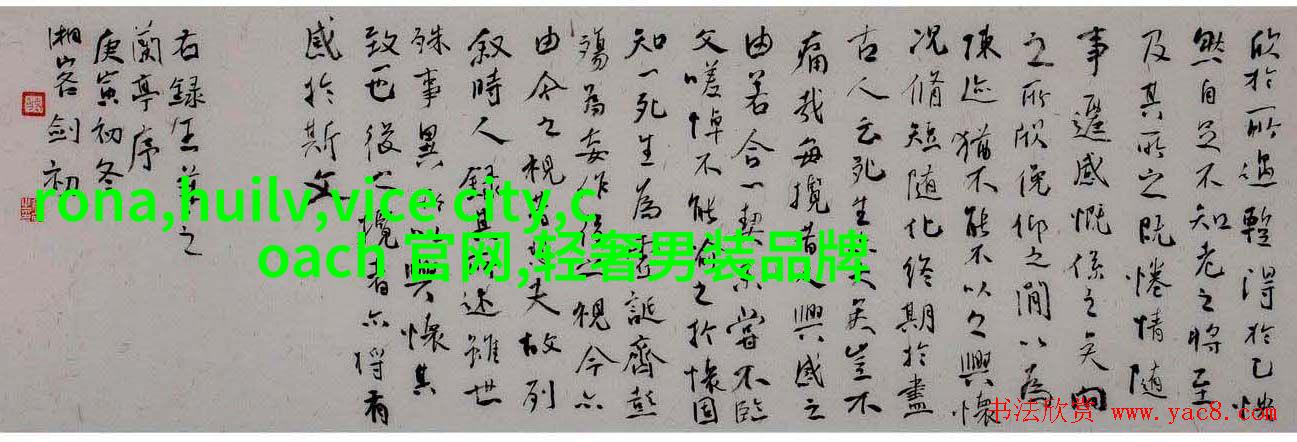 欣於所遇暫得於己快
然自足不知老之將至
及其所之既惓情隨
事遷感慨係之矣向
之所欣俛仰之間以為
陳迹猶不能不以之興懷
況脩短隨化終期於盡
古人云死生亦大矣豈不
痛哉每攬昔人興感之
由若合一契未嘗不臨
文嗟悼不能喻之於懷固
知一死生為虛誕齊彭
殤為妄作後之視今亦
由今之視昔悲夫故列
敘時人錄其所述雖世
殊事異所以興懷其
致一也後之攬者亦將有
感於斯文
右錄王羲之
蘭亭序
庚寅初冬
湘 劍初
rona,huilv,vice city,c
oach 官网,轻奢男装品牌
书法欣赏 www.yac8.com